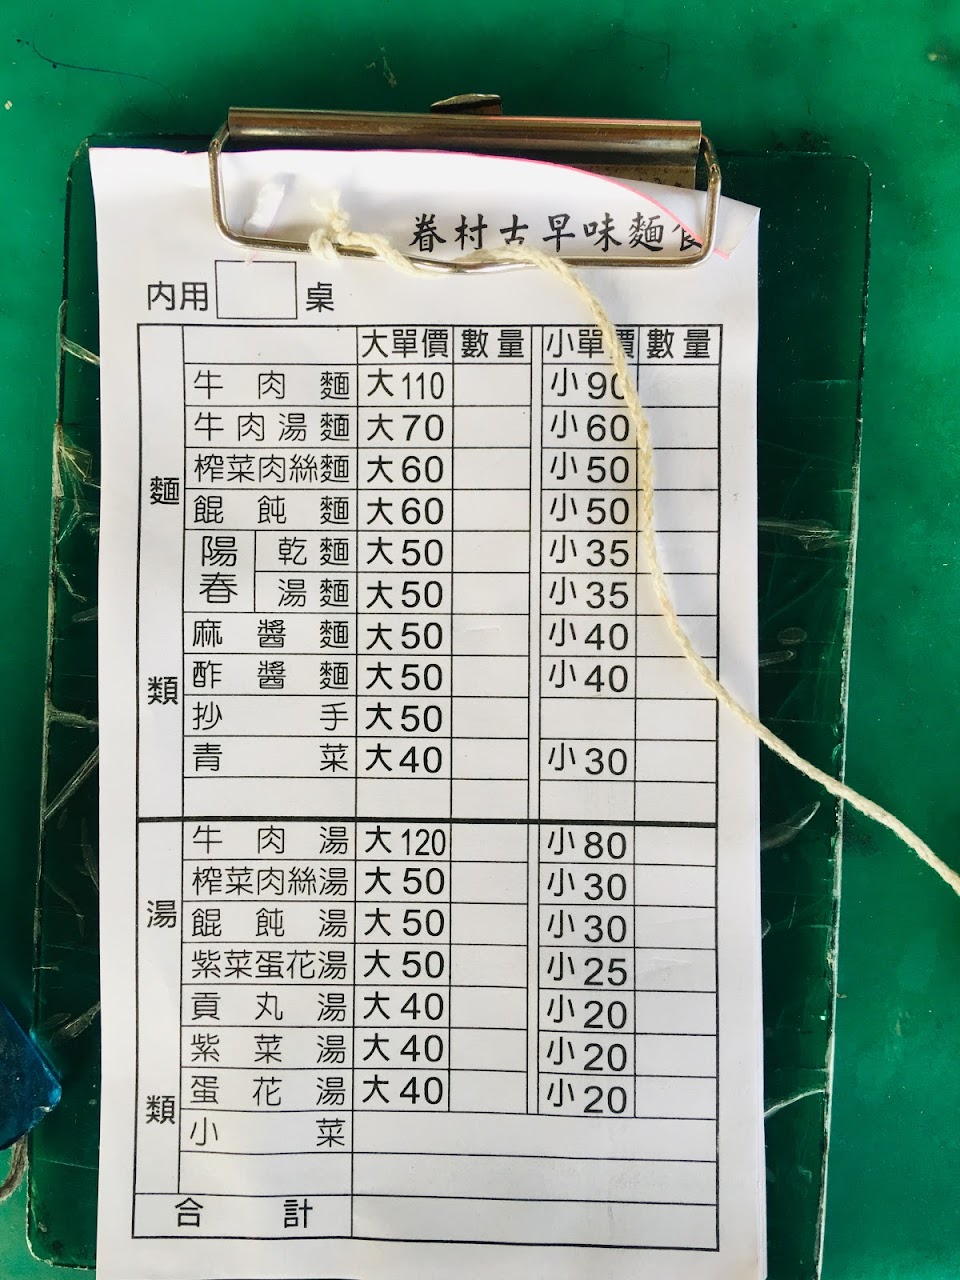 眷村古早味麵食
內用 桌
大單價 數量 小單價 數量
麵類
牛肉麵 大110 小90
牛肉湯麵 大70 小60
榨菜肉絲麵 大60 小50
餛飩麵 大60 小50
陽春 乾麵 大50 小35
湯麵 大50 小35
麻醬麵 大50 小40
酢醬麵 大50 小40
抄手 大50
青菜 大40 小30
湯類
牛肉湯 大120 小80
榨菜肉絲湯 大50 小30
餛飩湯 大50 小30
紫菜蛋花湯 大50 小25
貢丸湯 大40 小20
紫菜湯 大40 小20
蛋花湯 大40 小20
小菜
合計